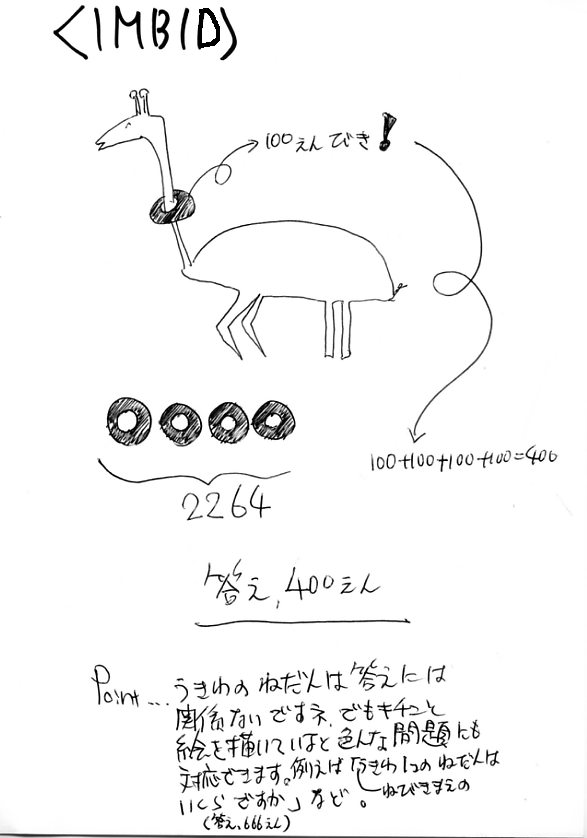 <IMBID>
100えんびき!
100+100+100+100=400
2264
答え,400えん
Point... うきわのねだんは答えには
関係ないですネ.でもキチンと
絵を描いていほと色んな問題にも
対応できます。例えば「うきわ1つのねだんは
ねびきまえの
いくらですか」など。
(答え,666えん)